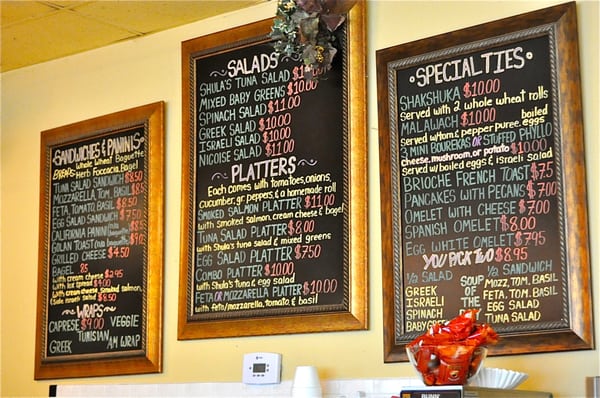 SANDWICHES & PANINIS
Whole Wheat Baguette
BREADS: Herb Foccacia, Bagel
TUNA SALAD SANDWICH $8.50
MOZZARELLA, TOM, BASIL $8.5
FETA, TOMATO, BASIL $8.50
EGG SALAD SANDWICH $7.50
CALIFORNIA PANINI
GOLAN TOAST
GRILLED CHEESE $4.50
BAGEL .85
with cream cheese $2.95
with lox spread $4.00
with cream cheese, smoked salmon,
Israeli salad $8.50
WRAPS
CAPRESE $9.00 VEGGIE
TUNISIAN
GREEK AM WRAP
SALADS
SHULA'S TUNA SALAD
MIXED BABY GREENS $10.00
SPINACH SALAD $11.00
GREEK SALAD $10.00
ISRAELI SALAD $10.00
NICOISE SALAD $11.00
PLATTERS
Each comes with tomatoes, onions,
cucumber, gr. peppers, & a homemade roll
SMOKED SALMON PLATTER $11.00
with smoked salmon, cream cheese & bagel
TUNA SALAD PLATTER $8.00
with Shula's tuna salad & mixed greens
EGG SALAD PLATTER $7.50
COMBO PLATTER $10.00
with Shula's tuna & egg salad
FETA OR MOZZARELLA PLATTER $10.00
with feta/mozzarella, tomato, & basil
SPECIALTIES
SHAKSHUKA $10.00
served with 2 whole wheat rolls
MALAWACH $10.00 boiled
served w/tom & pepper puree, eggs
3 MINI BOUREKAS OR STUFFED PHYLLO
cheese, mushroom, or potato $10.00
served w/ boiled eggs & israeli salad
BRIOCHE FRENCH TOAST $7.5
PANCAKES WITH PECANS $7.00
OMELET WITH CHEESE $7.00
SPANISH OMELET $8.00
EGG WHITE OMELET $7.95
YOU PICK TWO $8.95
1/2 SALAD
GREEK
ISRAELI
SPINACH
BABY
SOUP OF THE DAY
1/2 SANDWICH
MOZZ, TOM, BASIL
FETA, TOM, BASIL
EGG SALAD
TUNA SALAD
BUNN